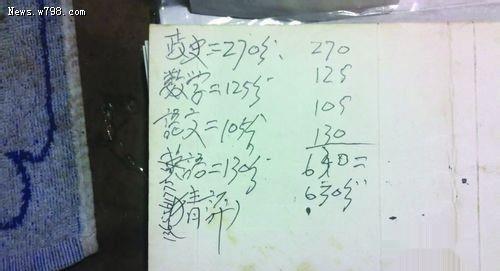 News.w798.com
政史=270分、 270
数学=125分 125
語文=105分 105
英語=130分 130
630分